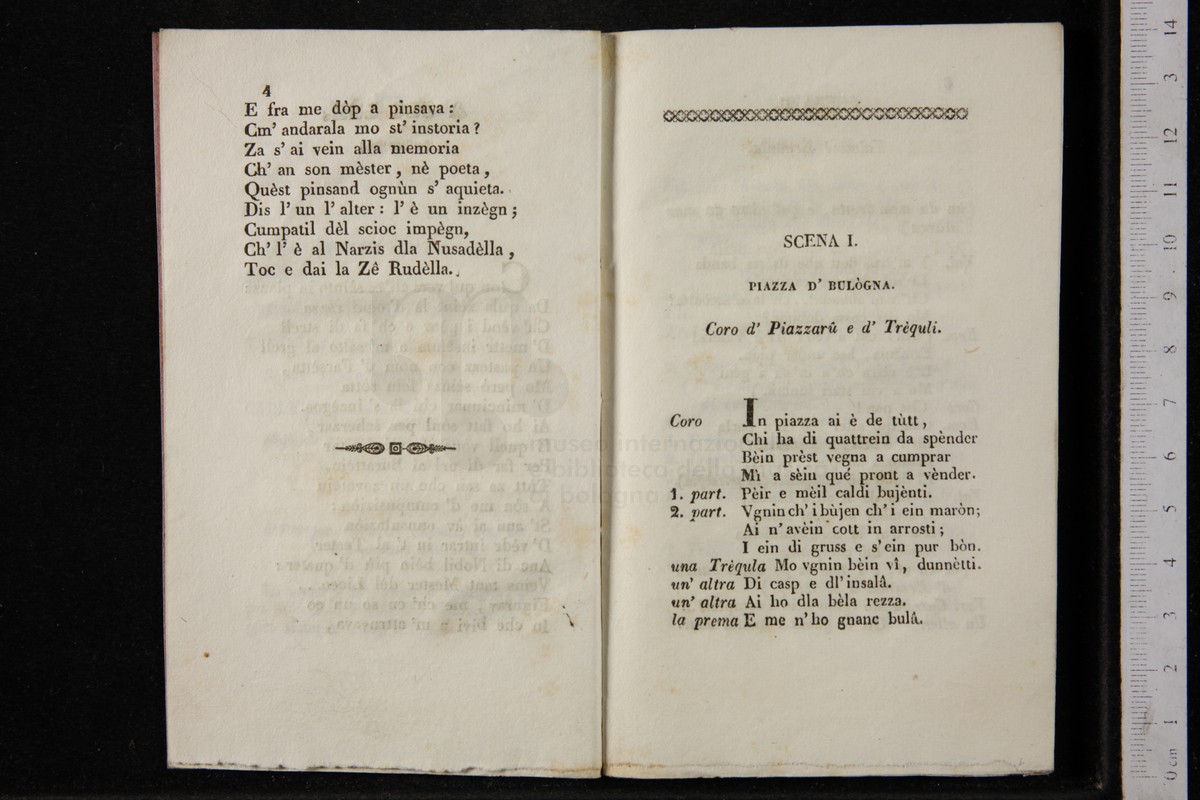 4
E fra me dòp a pinsava :
Cm' andarala mo st' instoria ?
Za s' ai vein alla memoria
Ch' an son mèster , nè poeta ,
Quèst pinsand ognùn s' aquieta.
Dis l' un l' alter : l' è un inzègn ;
Cumpatil dèl scioc impègn,
Ch' l' è al Narzis dla Nusadèlla ,
Toc e dai la Zê Rudèlla.
SCENA I.
PIAZZA D' BULÒGNA.
Coro d' Piazzarû e d' Trèquli.
Coro In piazza ai è de tùtt ,
Chi ha di quattrein da spènder
Bèin prèst vegna a cumprar
Mì a sèin qué pront a vènder.
1. part. Pèir e mèil caldi bujènti.
2. part. Vgnin ch' i bùjen ch' i ein maròn;
Ai n' avèin cott in arrosti ;
I ein di gruss e s' ein pur bòn.
una Trèqula Mo vgnin bèin vî , dunnètti.
un' altra Di casp e dl' insalâ.
un' altra Ai ho dla bèla rezza.
la prema E me n' ho gnanc bulâ.
museo internazionale
biblioteca della
bologna
14
13
12
11
10
9
8
7
6
5
4
3
2
1
0 cm